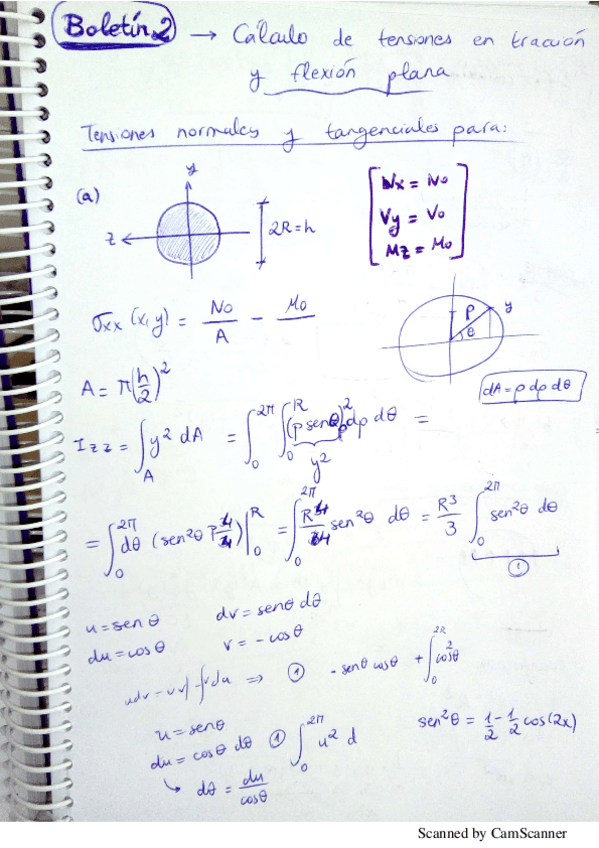 Boletín 2 → Cálculo de tensiones en tracción
y flexión plana
Tensiones normales y tangenciales para:
(a)
y
z
2R = h
Nx = No
Vy = Vo
Mz = Mo
σxx (x, y) = No/A − Mo/
ρ
θ
y
A = π(h/2)²
dA = ρ dρ dθ
Izz = ∫_A y² dA = ∫_0^2π ∫_0^R (ρ senθ)² ρ dρ dθ =
y²
= ∫_0^2π dθ (sen²θ ρ⁴/4)|_0^R = ∫_0^2π R⁴/4 sen²θ dθ = R³/3 ∫_0^2π sen²θ dθ
①
u = senθ dv = senθ dθ
du = cosθ v = −cosθ
udv = uv − ∫vdu ⇒ ① − senθ cosθ + ∫_0^2π cos²θ
u = senθ
du = cosθ dθ ① ∫_0^2π u² d
sen²θ = 1/2 − 1/2 cos(2x)
↳ dθ = du/cosθ
Scanned by CamScanner